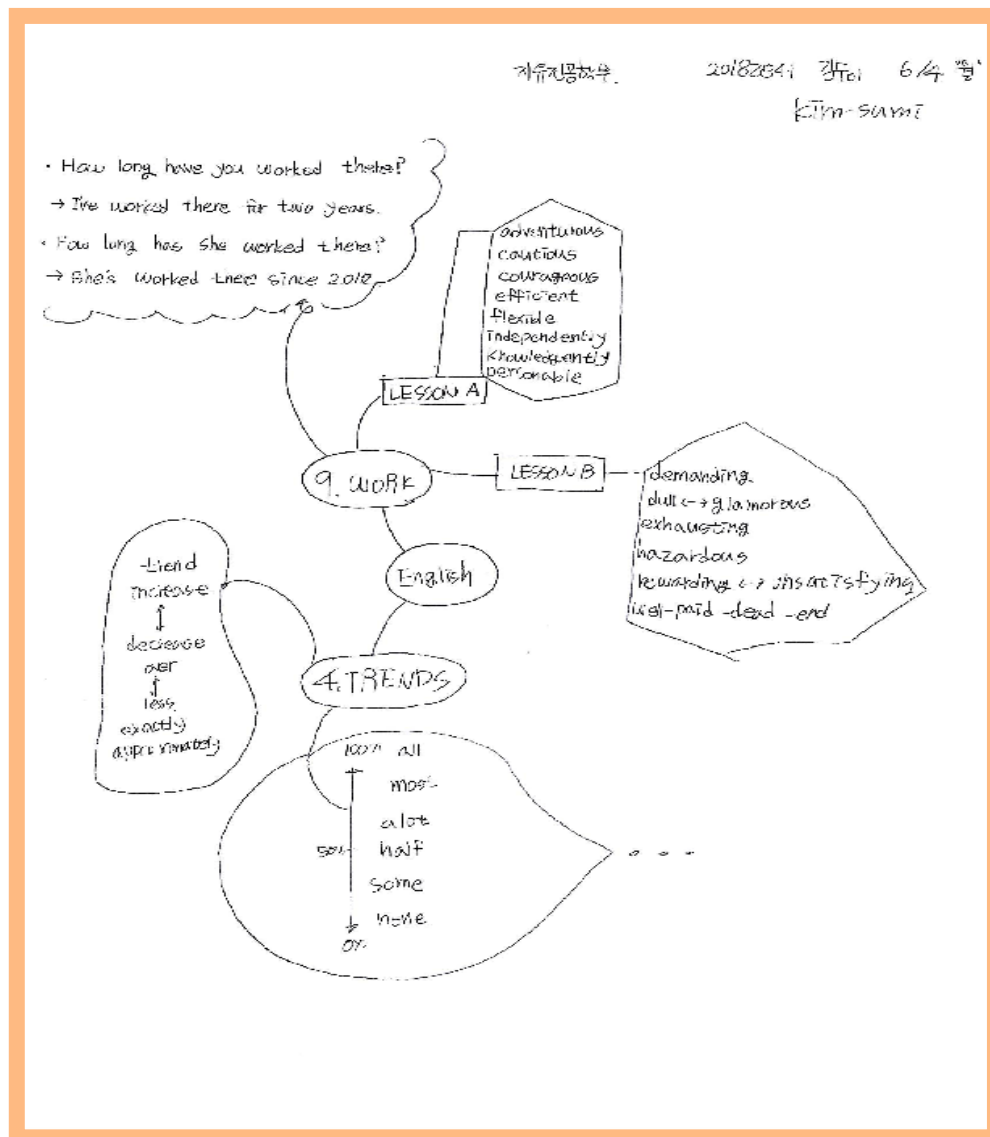 자유전공학부 6/4 "월"
kim-sumi
· How long have you worked there?
→ I've worked there for two years.
· How long has she worked there?
→ She's worked there since 2018
adventurous
cautious
courageous
efficient
flexible
independently
personable
LESSON A
9. WORK
LESSON B
demanding
dull ↔ glamorous
exhausting
hazardous
rewarding ↔ unsatisfying
well-paid -dead -end
English
-trend
increase
↕
decrease
over
↕
less
exactly
approximately
4. TRENDS
100% all
most
alot
50% half
some
none
0%